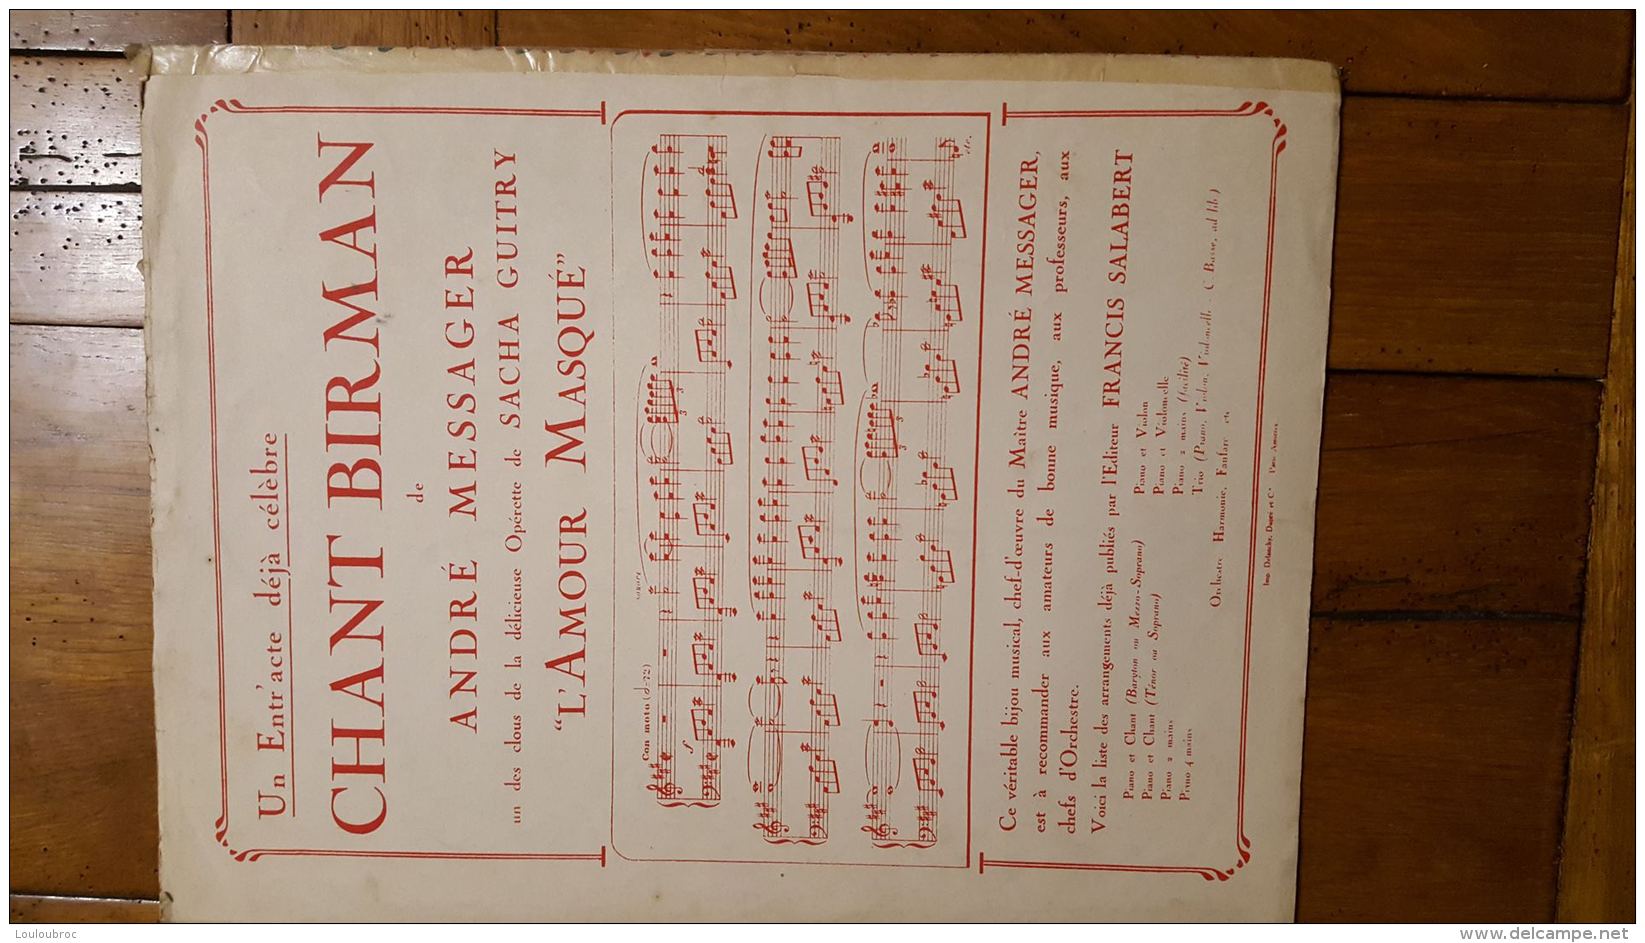 Un Entr'acte déjà célèbre
CHANT BIRMAN
de
ANDRÉ MESSAGER
un des clous de la délicieuse Opérette de SACHA GUITRY
"L'AMOUR MASQUÉ"
Con moto (♩=72)
f
3
3
3
3
etc.
Ce véritable bijou musical, chef-d'œuvre du Maître ANDRÉ MESSAGER,
est à recommander aux amateurs de bonne musique, aux professeurs, aux
chefs d'Orchestre.
Voici la liste des arrangements déjà publiés par l'Editeur FRANCIS SALABERT
Piano et Chant (Baryton ou Mezzo-Soprano)
Piano et Chant (Ténor ou Soprano)
Piano 2 mains
Piano 4 mains
Piano et Violon
Piano et Violoncelle
Piano 2 mains (facilité)
Trio (Piano, Violon, Violoncelle - C. Basse, ad lib)
Orchestre Harmonie, Fanfare etc
Imp. Delanchy, Dupré et Cie Paris
Louloubroc
www.delcampe.net